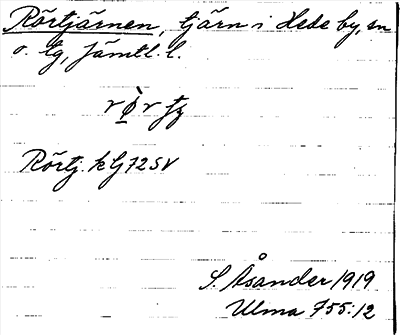 Rörtjärnen, tjärn i Hede by, sn
o. tg, Jämtl. l.
Rörtj. k Gj 72 SV
S. Åsander 1919
Ulma 755:12